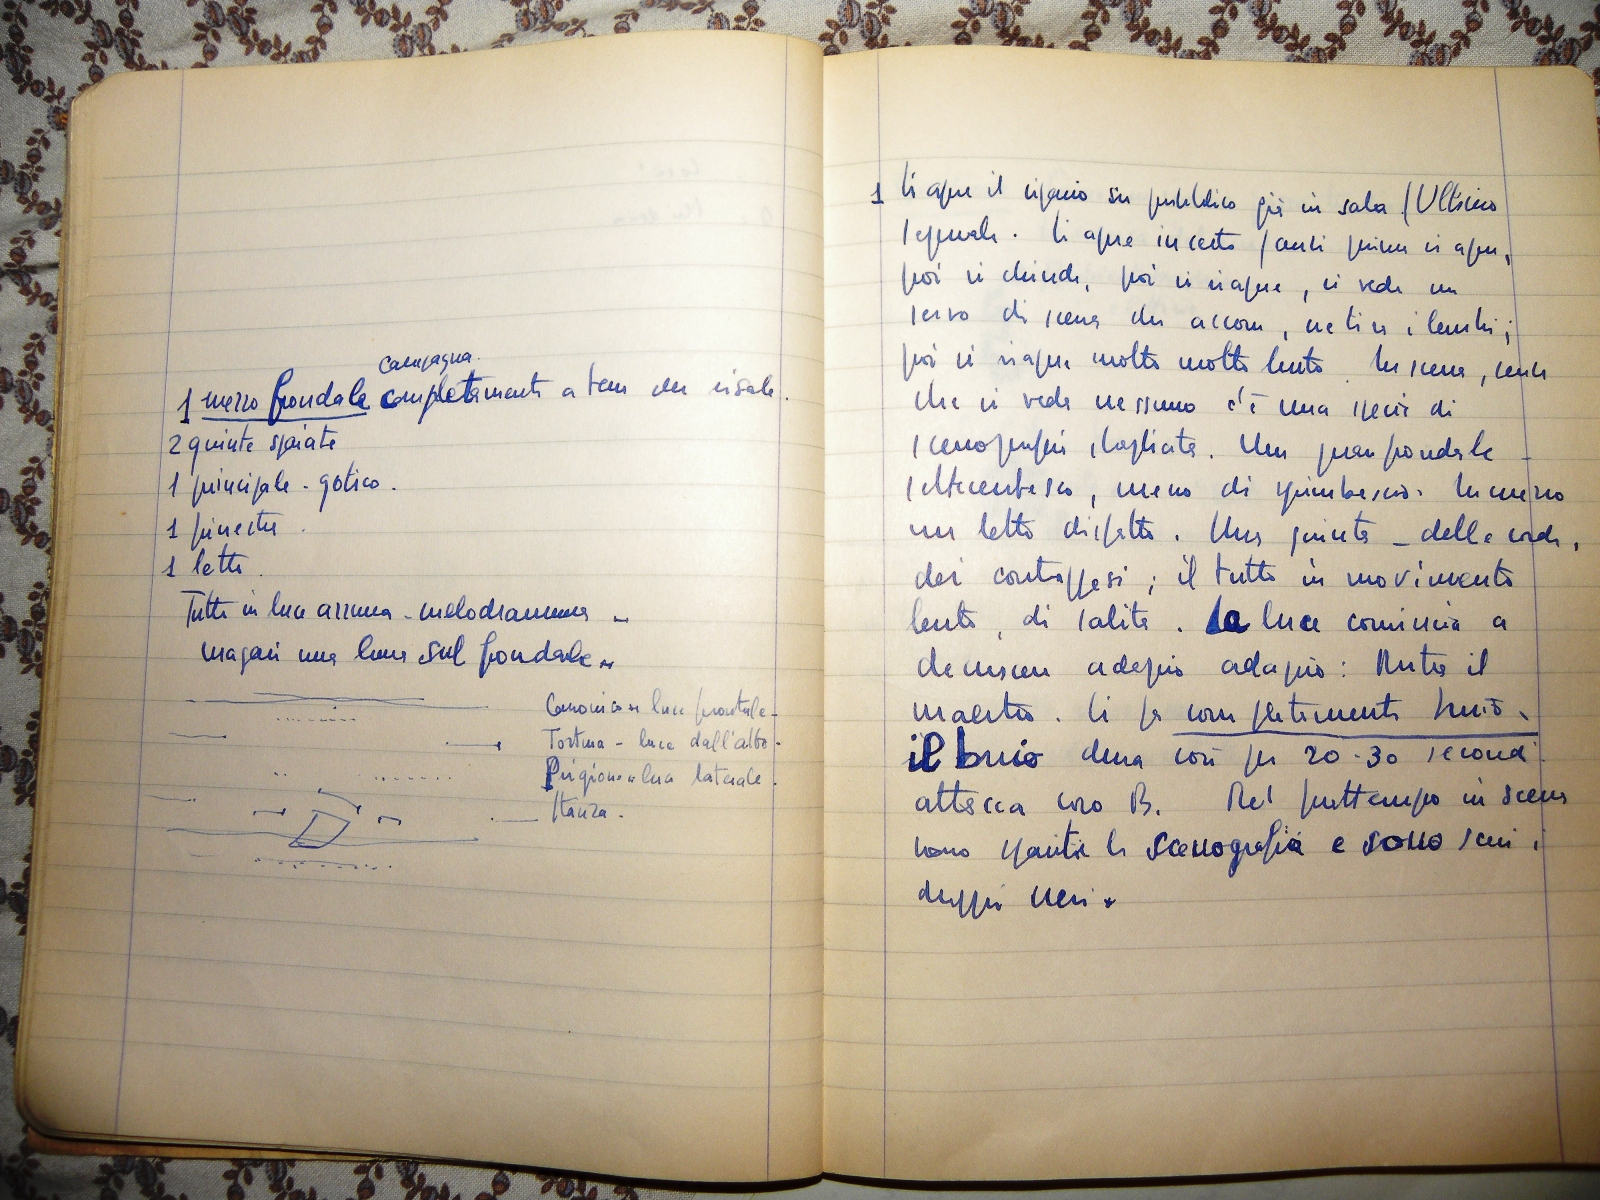 campagna.
1 mezzo fondale completamente a terra che risale.
2 quinte spaiate
1 principale - gotico.
1 finestra.
1 letto.
Tutto in luce azzurra - melodramma -
magari una luna sul fondale -
Canonico - luce frontale -
Tortura - luce dall'alto -
Prigione - luce laterale.
Stanza.
1 Si apre il sipario su pubblico già in sala (Ultimo
segnale. Si apre incerto / anzi prima si apre,
poi si chiude, poi si riapre, si vede un
servo di scena che accorre, ne tira i lembi;
poi si riapre molto molto lento. In scena, senza
che si veda nessuno c'è una specie di
scenografia sbagliata. Un gran fondale -
settecentesco, meno di quimbesco. In mezzo
un letto disfatto. Una quinta - delle corde,
dei contrappesi; il tutto in movimento
lento, di salita. La luce comincia a
decrescere adagio adagio: Entra il
maestro. Si fa completamente buio.
il buio dura così per 20-30 secondi
attacca coro B. Nel frattempo in scena
sono sparite le scenografie e sono scesi i
drappi neri.